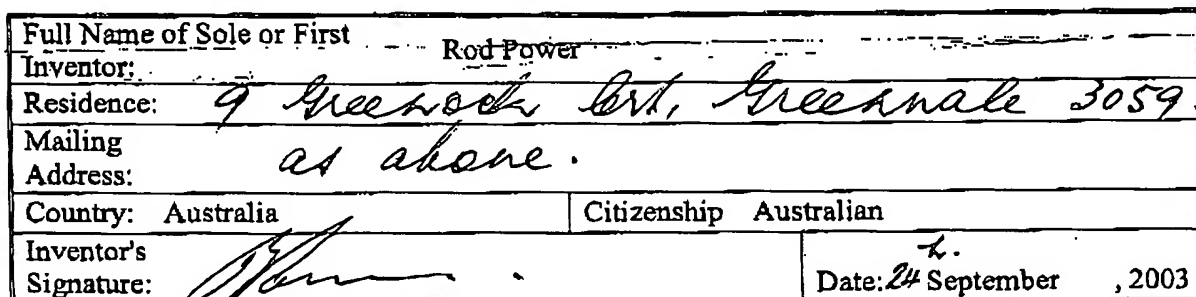 Full Name of Sole or First
Inventor: Rod Power
Residence: 9 Greenock Crt, Greenvale 3059.
Mailing
Address: as above.
Country: Australia Citizenship Australian
Inventor's
Signature: Date: 24 September , 2003